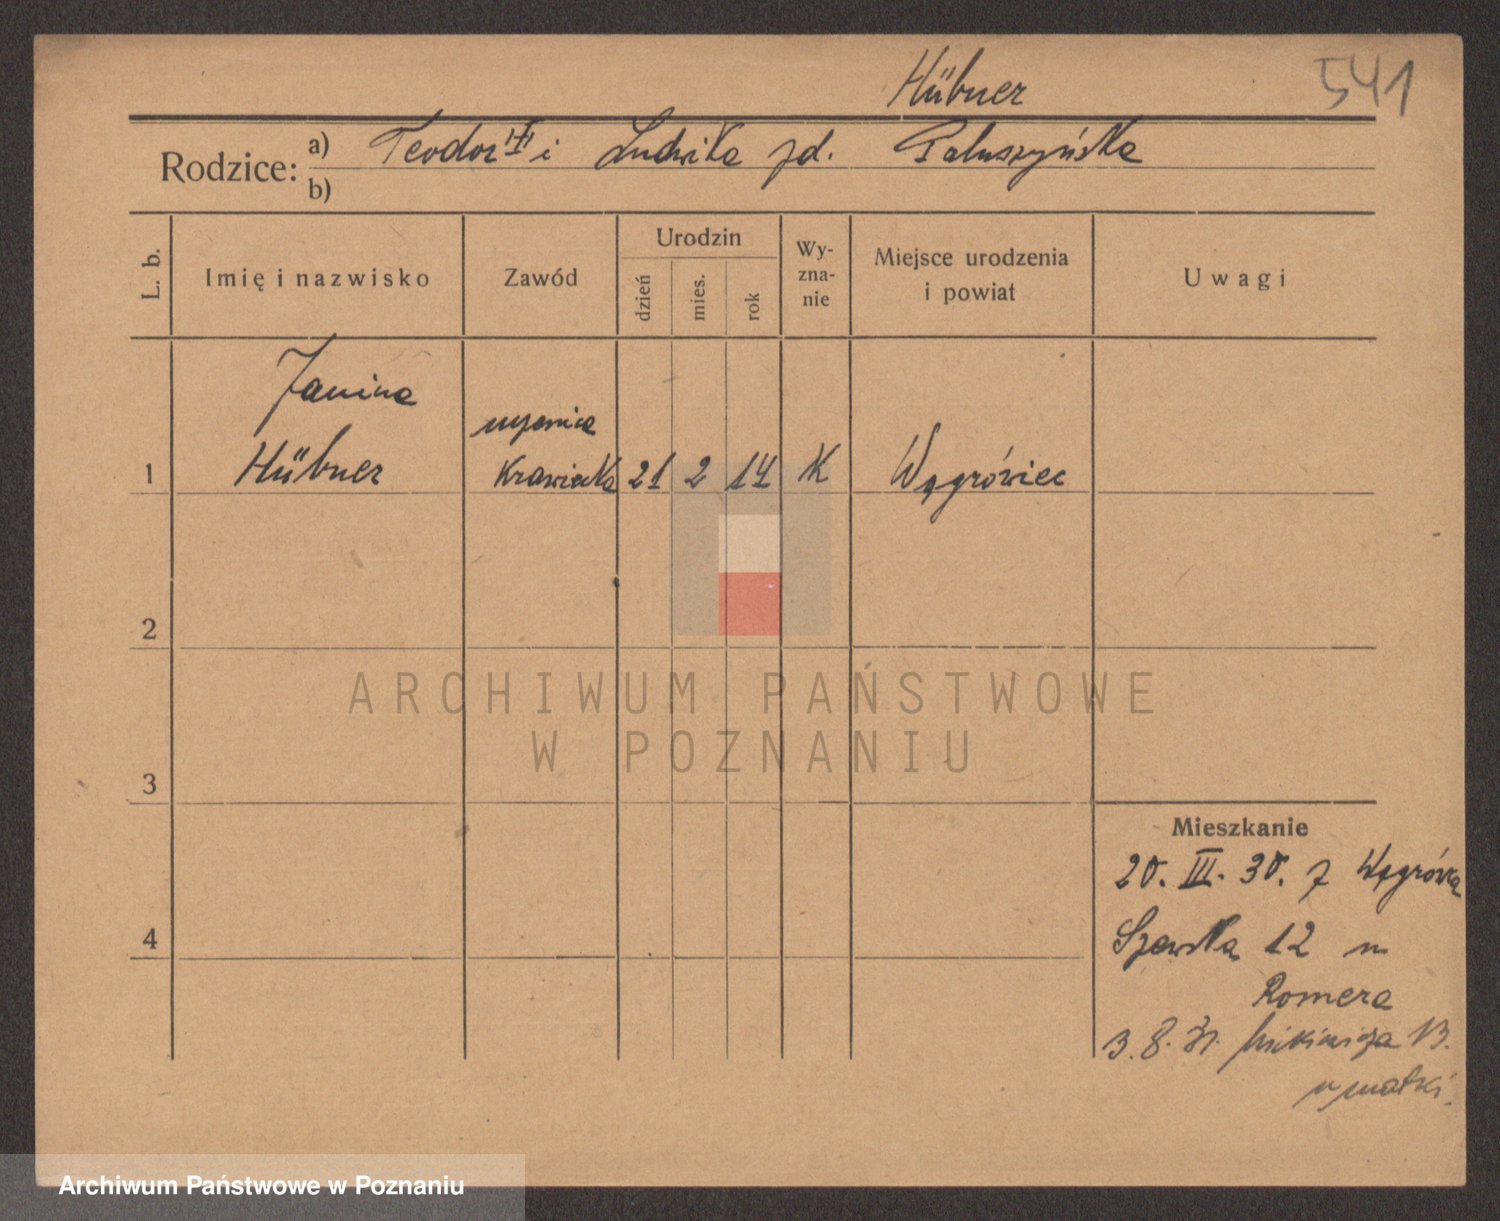 Hübner
541
Rodzice:
a) Teodor † i Ludwika zd. Paluszyńska
b)
L. b.
Imię i nazwisko
Zawód
Urodzin
dzień
mies.
rok
Wy-
zna-
nie
Miejsce urodzenia
i powiat
Uwagi
Janina
uczenica
1 Hübner krawiecka 21 2 14 K Wągrówiec
2
ARCHIWUM PAŃSTWOWE
W POZNANIU
3
Mieszkanie
20. III. 30. z Wągrówca
4
Szewska 12 u
Romera
3. 8. 31. Mickiewicza 13.
u matki.
Archiwum Państwowe w Poznaniu